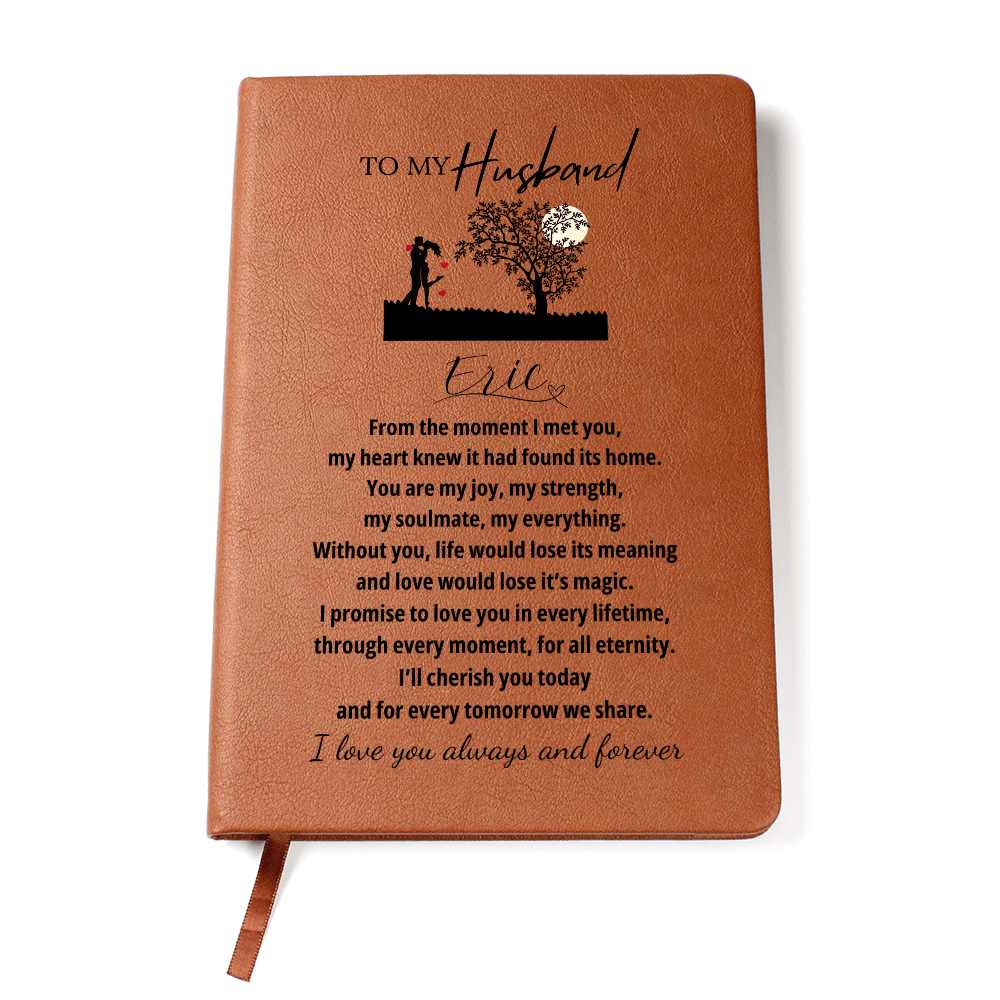 TO MY Husband
Eric
From the moment I met you,
my heart knew it had found its home.
You are my joy, my strength,
my soulmate, my everything.
Without you, life would lose its meaning
and love would lose it’s magic.
I promise to love you in every lifetime,
through every moment, for all eternity.
I’ll cherish you today
and for every tomorrow we share.
I love you always and forever